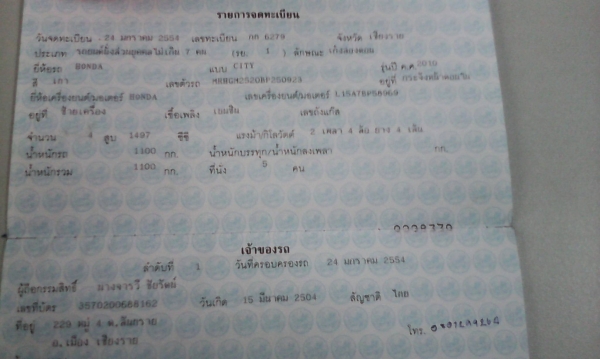 รายการจดทะเบียน
วันจดทะเบียน 24 มกราคม 2554 เลขทะเบียน กก 6279 จังหวัด เชียงราย
ประเภท รถยนต์นั่งส่วนบุคคลไม่เกิน 7 คน (รย. 1 ) ลักษณะ เก๋งสองตอน
ยี่ห้อรถ HONDA แบบ CITY รุ่นปี ค.ศ. 2010
สี เทา เลขตัวรถ อยู่ที่
ยี่ห้อเครื่องยนต์/มอเตอร์ HONDA เลขเครื่องยนต์/มอเตอร์
อยู่ที่ เชื้อเพลิง เบนซิน เลขถังแก๊ส
จำนวน 4 สูบ 1497 ซีซี แรงม้า/กิโลวัตต์ 2 เพลา 4 ล้อ ยาง 4 เส้น
น้ำหนักรถ 1100 กก. น้ำหนักบรรทุก/น้ำหนักลงเพลา กก.
น้ำหนักรวม 1100 กก. ที่นั่ง คน
เจ้าของรถ
ลำดับที่ 1 วันที่ครอบครองรถ 24 มกราคม 2554
ผู้ถือกรรมสิทธิ์ นางจารวี ชัยวัฒน์
เลขที่บัตร 3570200688162 วันเกิด 15 มีนาคม 2504 สัญชาติ ไทย
ที่อยู่ 229 หมู่ 4 ต.สันทราย โทร.
อ.เมือง เชียงราย